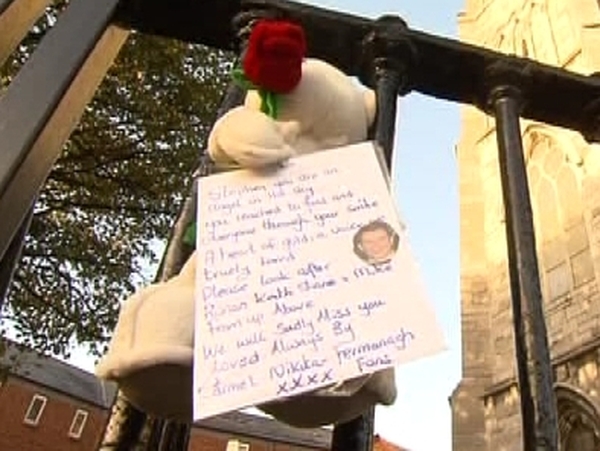 Stephen you are an
angel in the sky
you reached to fans and
everyone through your smile
A heart of gold, a voice
truely loved
Please look after
Ronan Keith Shane + Mike
from up Above
We will Sadly Miss you
Loved Always By
Nikita - Fermanagh
xxxx Fans